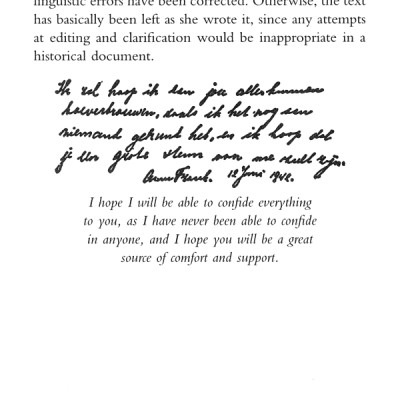 linguistic errors have been corrected. Otherwise, the text
has basically been left as she wrote it, since any attempts
at editing and clarification would be inappropriate in a
historical document.
Ik zal hoop ik aan jou alles kunnen
toevertrouwen, zoals ik het nog aan
niemand gekund heb, en ik hoop dat
je een grote steun van me zult zijn.
Anne Frank. 12 Juni 1942.
I hope I will be able to confide everything
to you, as I have never been able to confide
in anyone, and I hope you will be a great
source of comfort and support.